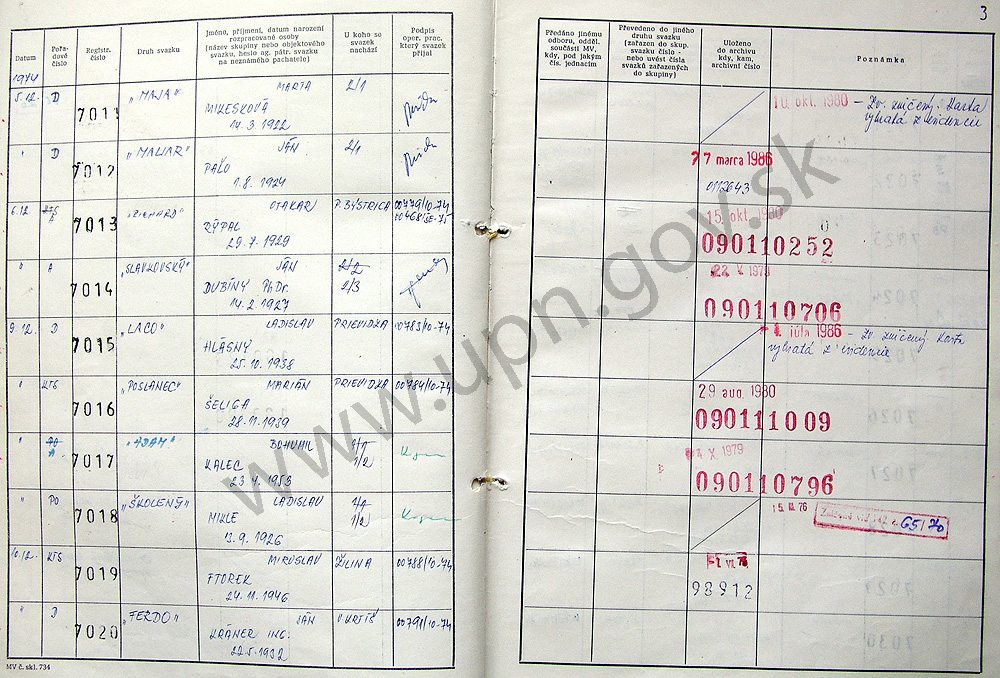 3
Datum
Pořa-
dové
číslo
Registr.
číslo
Druh svazku
Jméno, příjmení, datum narození
rozpracované osoby
(název skupiny nebo objektového
svazku, heslo ag. pátr. svazku
na neznámého pachatele)
U koho se
svazek
nachází
Podpis
oper. prac.
který svazek
přijal
Předáno jinému
odboru, odděl.
součásti MV,
kdy, pod jakým
čís. jednacím
Převedeno do jiného
druhu svazku
(zařazen do skup.
svazku číslo -
nebo uvést čísla
svazků zařazených
do skupiny)
Uloženo
do archivu
kdy, kam,
archivní číslo
Poznámka
1974
5.12. D 7011 "MAJA" MARTA 2/1
MIKESKOVÁ
14.3.1922
10. okt. 1980 - Zv. zničený. Karta
vybratá z evidencie
" D 7012 "MALIAR" JÁN 2/1
PAŤO
1.8.1924
27 marca 1986
0112643
6.12. KTS A 7013 "RICHARD" OTAKAR P. BYSTRICA 00779/10-74
RÝPAL
29.7.1929
15. okt. 1980
090110252
" A 7014 "SLAVKOVSKÝ" JÁN 2/2
2/3
DUBÍNY PhDr.
14.2.1927
22 V. 1979
090110706
9.12. D 7015 "LACO" LADISLAV PRIEVIDZA 00783/10-74
HLÁSNY
25.10.1938
1. júla 1986 - Zv. zničený Karta
vybratá z evidencie
" KTS 7016 "POSLANEC" MARIÁN PRIEVIDZA 00784/10-74
ŠELIGA
28.11.1939
29 aug. 1980
090111009
" PO A 7017 "ADAM" BOHUMIL
1/2
KALEC
23.4.1953
X 1979
090110796
" PO 7018 "ŠKOLENÝ" LADISLAV
1/2
MIKLE
13.9.1926
15. IX. 76
65/70
10.12. KTS 7019 MIROSLAV ŽILINA 00788/10-74
FTOREK
24.11.1946
VI. 78
98912
" D 7020 "FERDO" JÁN V. KRTÍŠ 00791/10-74
KRÁNER ING.
22.5.1932
MV č. skl. 734
www.upn.gov.sk